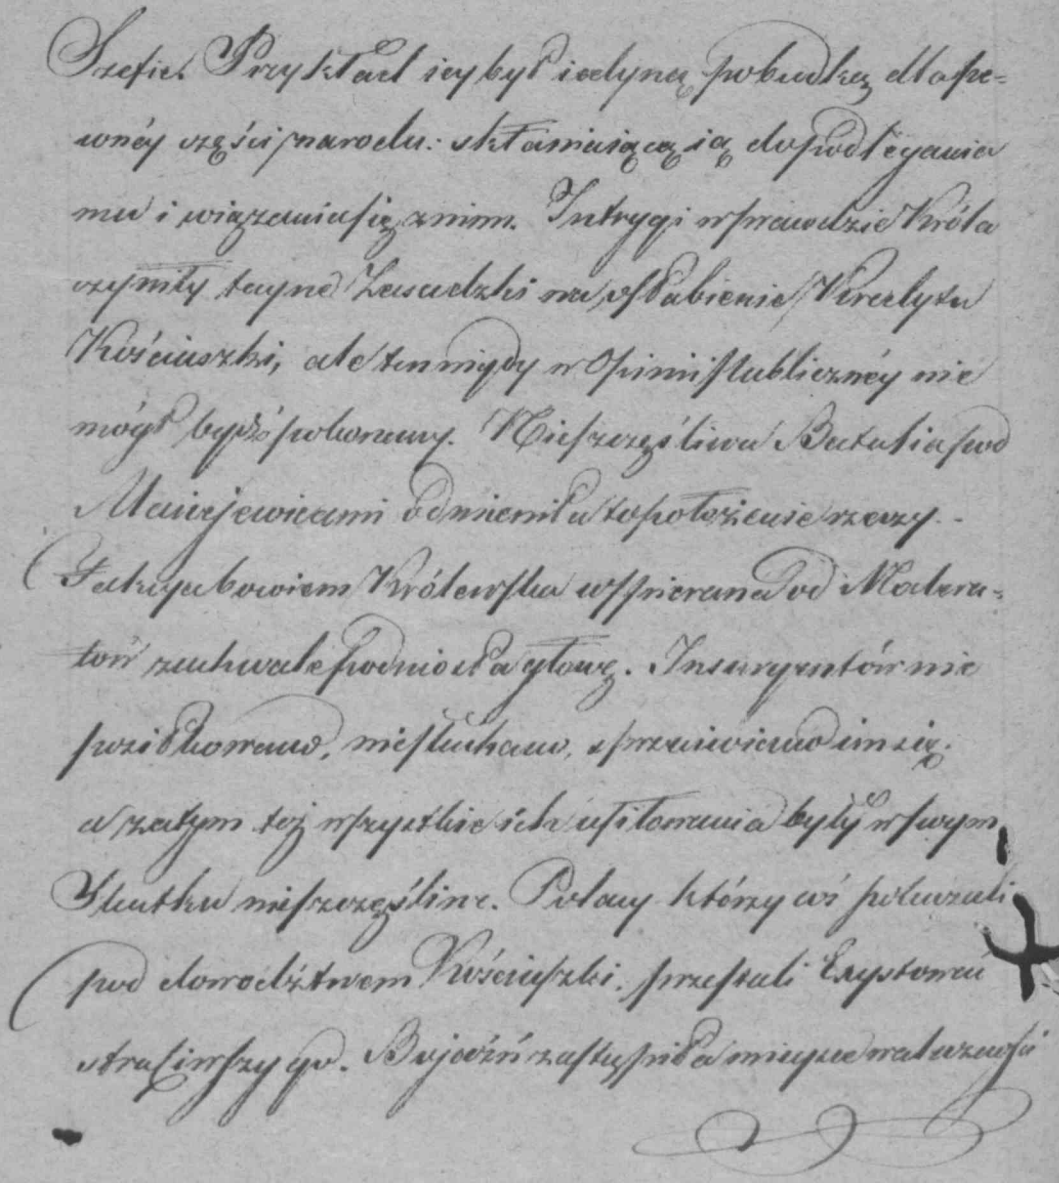 Szefie. Przykład iey był iedyną pobudką dla pe-
wnéy części narodu: skłaniaiącą ią do podlegania
mu i wiązania się z nim. Intrygi wprawdzie Króla
czyniły tayne Zasadzki na osłabienie Kredytu
Kościuszki, ale ten nigdy w Opinii publicznéy nie
mógł bydź pokonany. Nieszczęśliwa Batalia pod
Maciejewicami odmieniła to położenie rzeczy.
Fakcya bowiem Królewska wspierana od
zuchwale podniosła głowę. Insurgentów nie
posiłkowano, niesłuchano, sprzeciwiano im się.
a zatym też wszystkie ich usiłowania były w swym
Skutku nieszczęśliwe. Polacy którzy coś pokazali
pod dowodźtwem Kościuszki, przestali Exystować
straciwszy go. Bojaźń zastąpiła mieysce waleczności